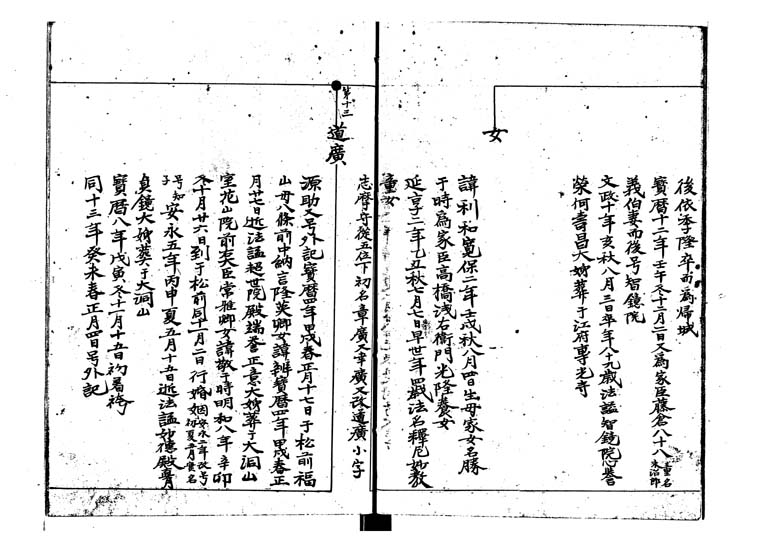 後依季隆卒而為帰城
寳暦十二年壬午冬十二月二日又為家臣藤倉八十八童名米治郎
義伯妻而後号智鏡院
文政十年亥秋八月三日卒年八十九歳法謚智鏡院心誉
榮何壽昌大姉葬于江府専光寺
女
諱利和寛保二年壬戌秋八月四日生母家女名勝
于時為家臣高橋浅右衛門光隆養女
延享二年乙丑秋七月七日早世年四歳法名釋尼妙教
童女
志摩守從五位下初名章廣又幸廣又改道廣小字
第十三
道廣
源助又号外記寳暦四年甲戌春正月十七日于松前福
山母八條前中納言隆英卿女諱辨寳暦四年甲戌春正
月廿七日逝法謚超世院殿端誉正意大姉葬于大洞山
室花山院前右大臣常雅卿女諱敬子時明和八年辛卯
冬十月廿六日到于松前同十一月二日行婚姻安永二年改号初夏五月童名
号知子安永五年丙申夏五月十五日逝法謚妙徳殿寳月
貞鏡大姉葬于大洞山
寳暦八年戊寅冬十一月十五日初着袴
同十三年癸未春正月四日号外記